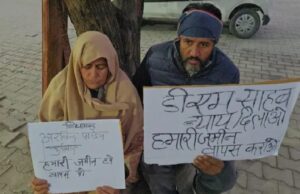 हमारी जमीन हमे
वापस दो
डीएम साहब
न्याय दिलाओ
हमारी जमीन
वापस कराओ